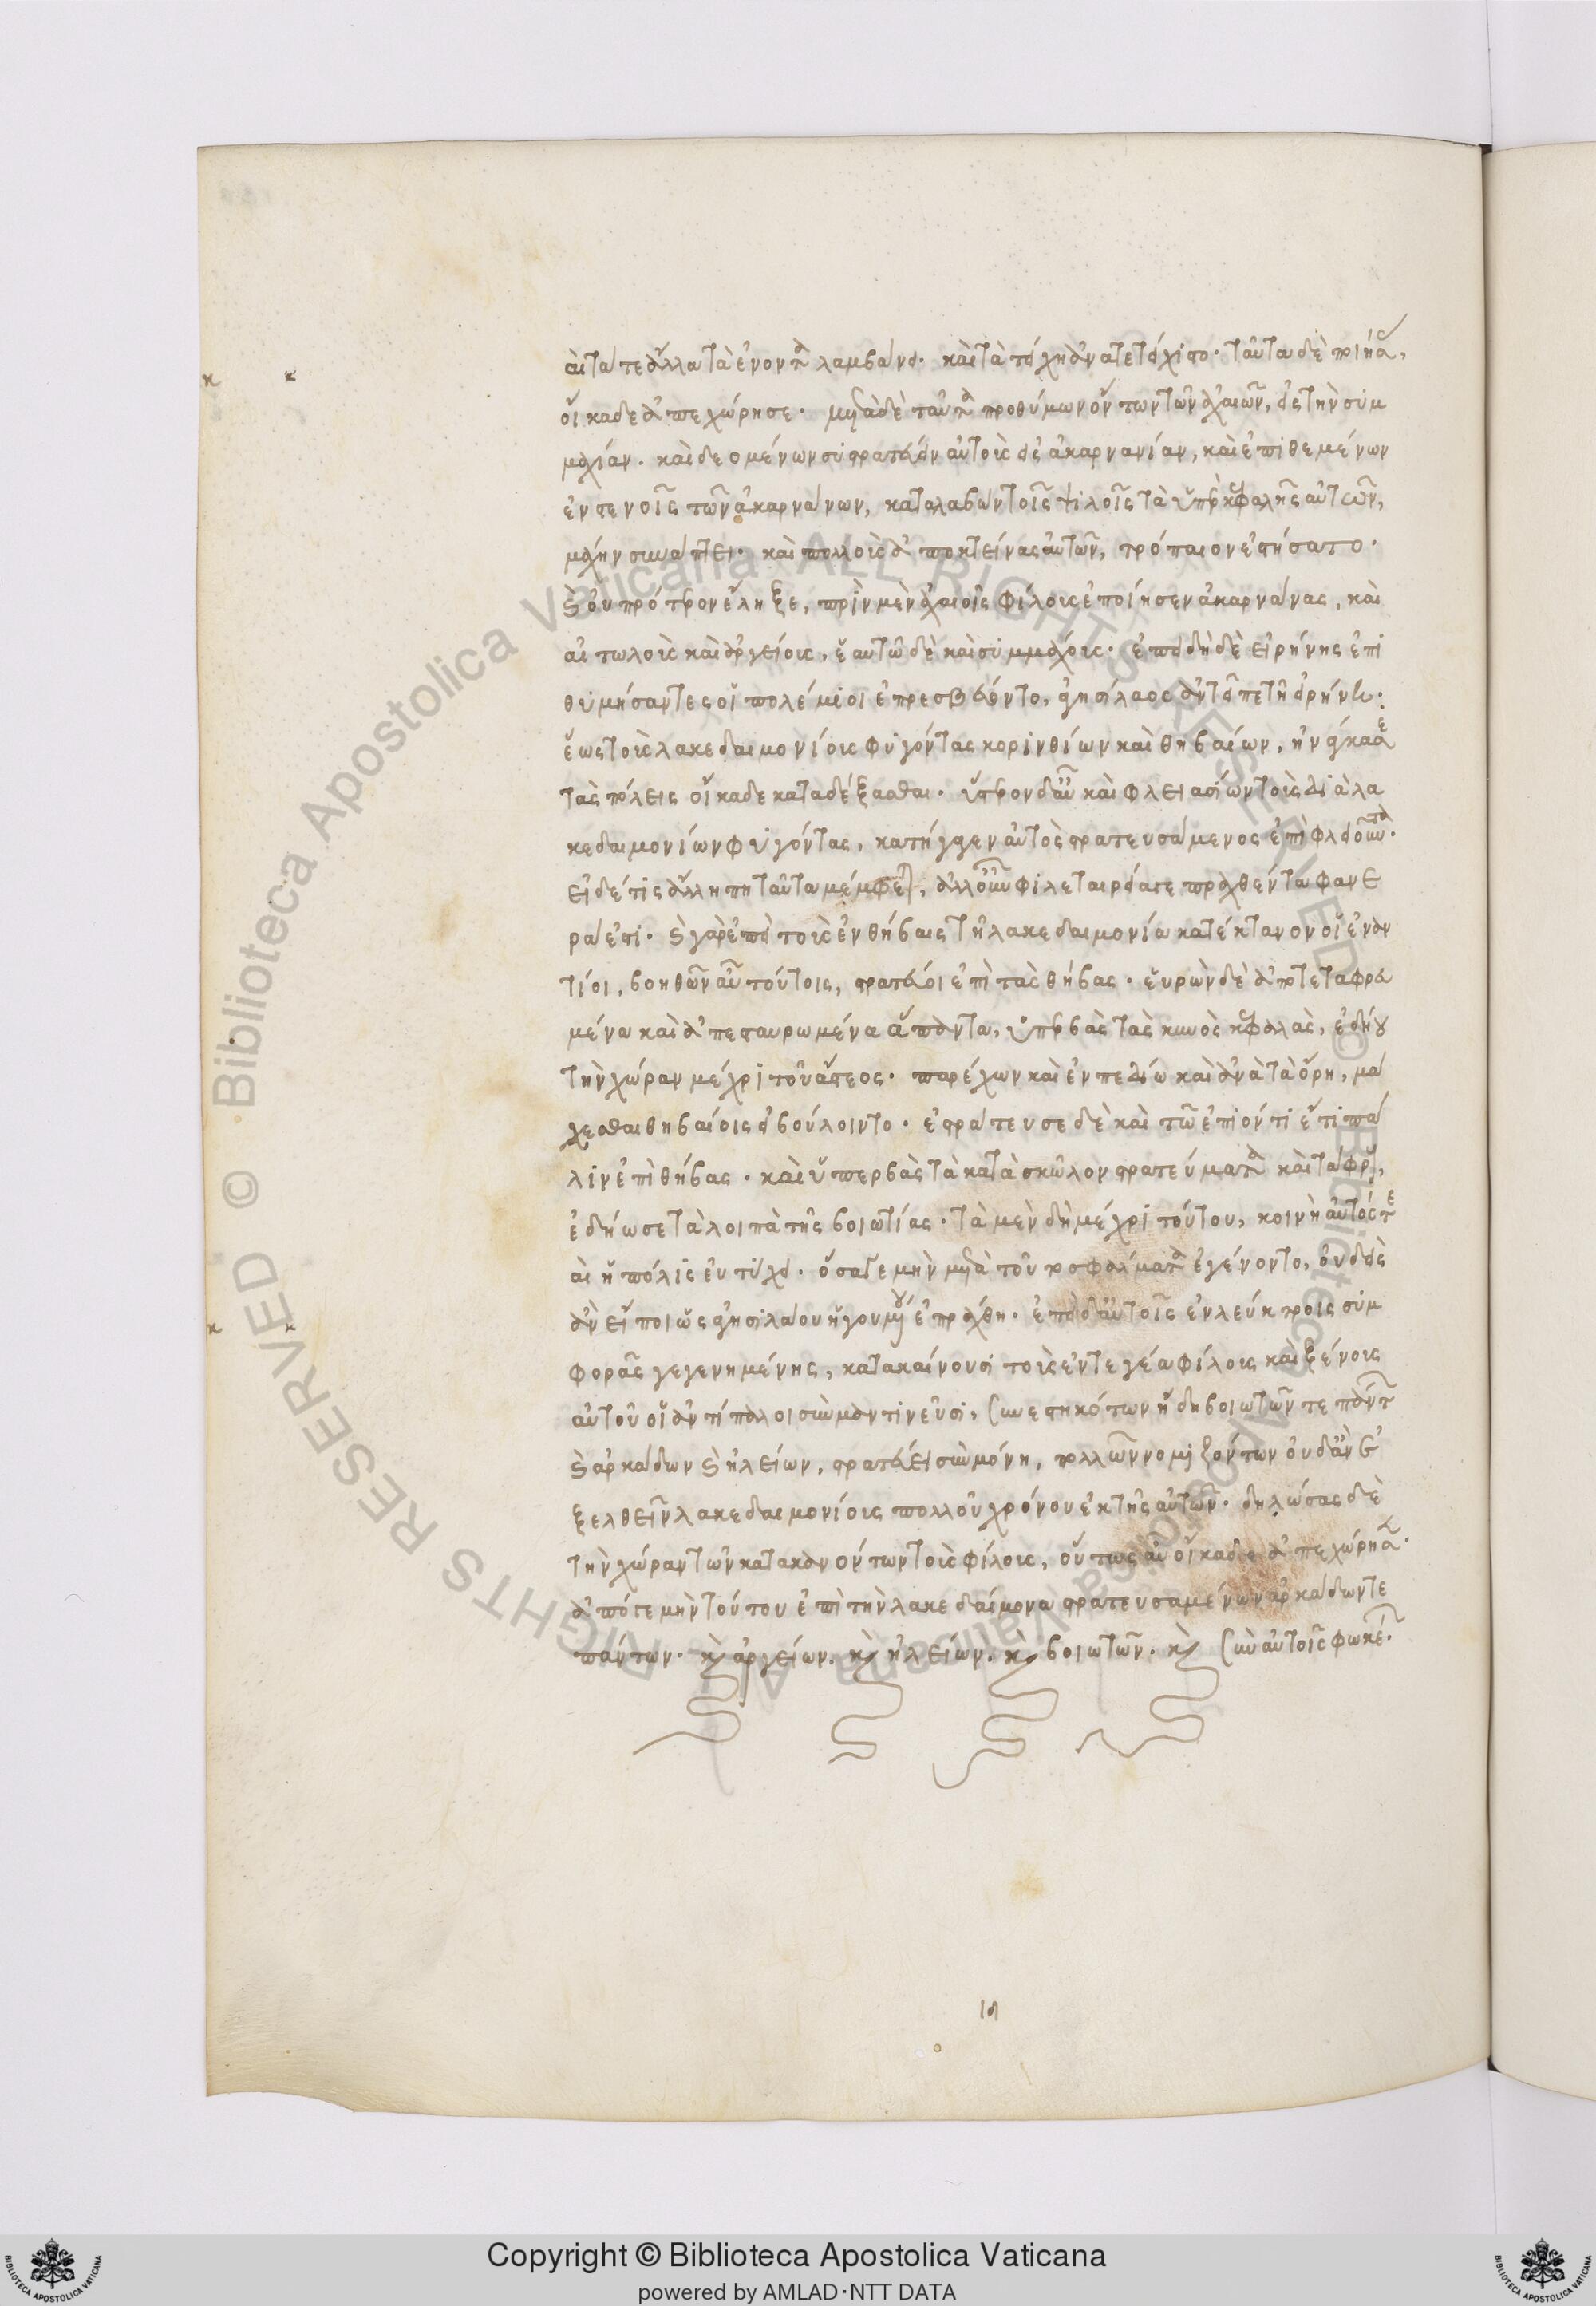 αἶτα τε ἄλλα τὰ ἐνόντα λαμβάνει. καὶ τὰ τείχη ἀνατετείχιστο. ταῦτα δὲ ποιήσας,
οἴκαδε ἀπεχώρησε. μετὰ δὲ ταῦτα προθύμων ὄντων τῶν ἀχαιῶν, εἰς τὴν συμ
μαχίαν. καὶ δεομένων συστρατεύειν αὐτοῖς εἰς ἀκαρνανίαν, καὶ ἐπιθεμένων
ἐν στενοῖς τῶν ἀκαρνάνων, καταλαβὼν τοῖς ψιλοῖς τὰ ὑπὲρ κεφαλῆς αὐτῶν,
μάχην συνάπτει. καὶ πολλοὺς ἀποκτείνας αὐτῶν, τρόπαιον ἐστήσατο.
καὶ οὐ πρότερον ἔληξε, πρὶν μὲν ἀχαιοῖς φίλους ἐποίησεν ἀκαρνάνας, καὶ
αἰτωλοὺς καὶ ἀργείους, ἑαυτῶ δὲ καὶ συμμάχους. ἐπειδὴ δὲ εἰρήνης ἐπι
θυμήσαντες οἱ πολέμιοι ἐπρεσβεύοντο, ἀγησίλαος ἀντεῖπε τῇ εἰρήνῃ.
ἕως τοὺς λακεδαιμονίοις φυγόντας κορινθίων καὶ θηβαίων, ἠνάγκασε
τὰς πόλεις οἴκαδε καταδέξασθαι. ὕστερον δ' αὖ καὶ φλειασίων τοὺς διὰ λα
κεδαιμονίων φυγόντας, κατήγαγεν αὐτὸς στρατευσάμενος ἐπὶ φλειοῦντα.
εἰ δέ τις ἄλλη πη ταῦτα μέμφεται, ἀλλ' οὖν φιλεταιρεία γε πραχθέντα φανε
ρά ἐστι. καὶ γὰρ ἐπεὶ τοὺς ἐν θήβαις τῇ λακεδαιμονία κατέκτανον οἱ ἐναν
τίοι, βοηθῶν αὖ τούτοις, στρατεύει ἐπὶ τὰς θήβας. εὑρὼν δὲ ἀποτεταφρευ
μένα καὶ ἀπεσταυρωμένα ἅπαντα, ὑπερβὰς τὰς κυνὸς κεφαλὰς, ἐδήου
τὴν χώραν μέχρι τοῦ ἄστεος. παρέχων καὶ ἐν πεδίω καὶ ἀνὰ τὰ ὄρη, μά
χεσθαι θηβαίοις εἰ βούλοιντο. ἐστράτευσε δὲ καὶ τῶ ἐπιόντι ἔτι πά
λιν ἐπὶ θήβας. καὶ ὑπερβὰς τὰ κατὰ σκῶλον στρατεύματα καὶ τάφρους,
ἐδήωσε τὰ λοιπὰ τῆς βοιωτίας. τὰ μὲν δὴ μέχρι τούτου, κοινῇ αὐτός τε
καὶ ἡ πόλις εὐτύχει. ὅσα γε μὴν μετὰ τοῦτο σφάλματα ἐγένοντο, οὐδεὶς
ἂν εἴποι ὡς ἀγησιλάου ἡγουμένου ἐπράχθη. ἐπεὶ δ' αὐτοῖς ἐν λεύκτροις συμ
φορᾶς γεγενημένης, κατακαίνουσι τοὺς ἐν τεγέα φίλους καὶ ξένους
αὐτοῦ οἱ ἀντίπαλοι σὺν μαντινεῦσι, συνεστηκότων ἤδη βοιωτῶν τε πάντων
καὶ ἀρκάδων καὶ ἠλείων, στρατεύει σὺν μόνῃ, πολλῶν νομιζόντων οὐδ' ἂν ἐ
ξελθεῖν λακεδαιμονίους πολλοῦ χρόνου ἐκ τῆς αὐτῶν. δῃώσας δὲ
τὴν χώραν τῶν κατακανόντων τοὺς φίλους, οὕτως αὖ οἴκαδε ἀπεχώρησεν.
ἀπό γε μὴν τούτου ἐπὶ τὴν λακεδαίμονα στρατευσαμένων ἀρκάδων τε
πάντων. καὶ ἀργείων. καὶ ἠλείων. καὶ βοιωτῶν. καὶ σὺν αὐτοῖς φωκέων.